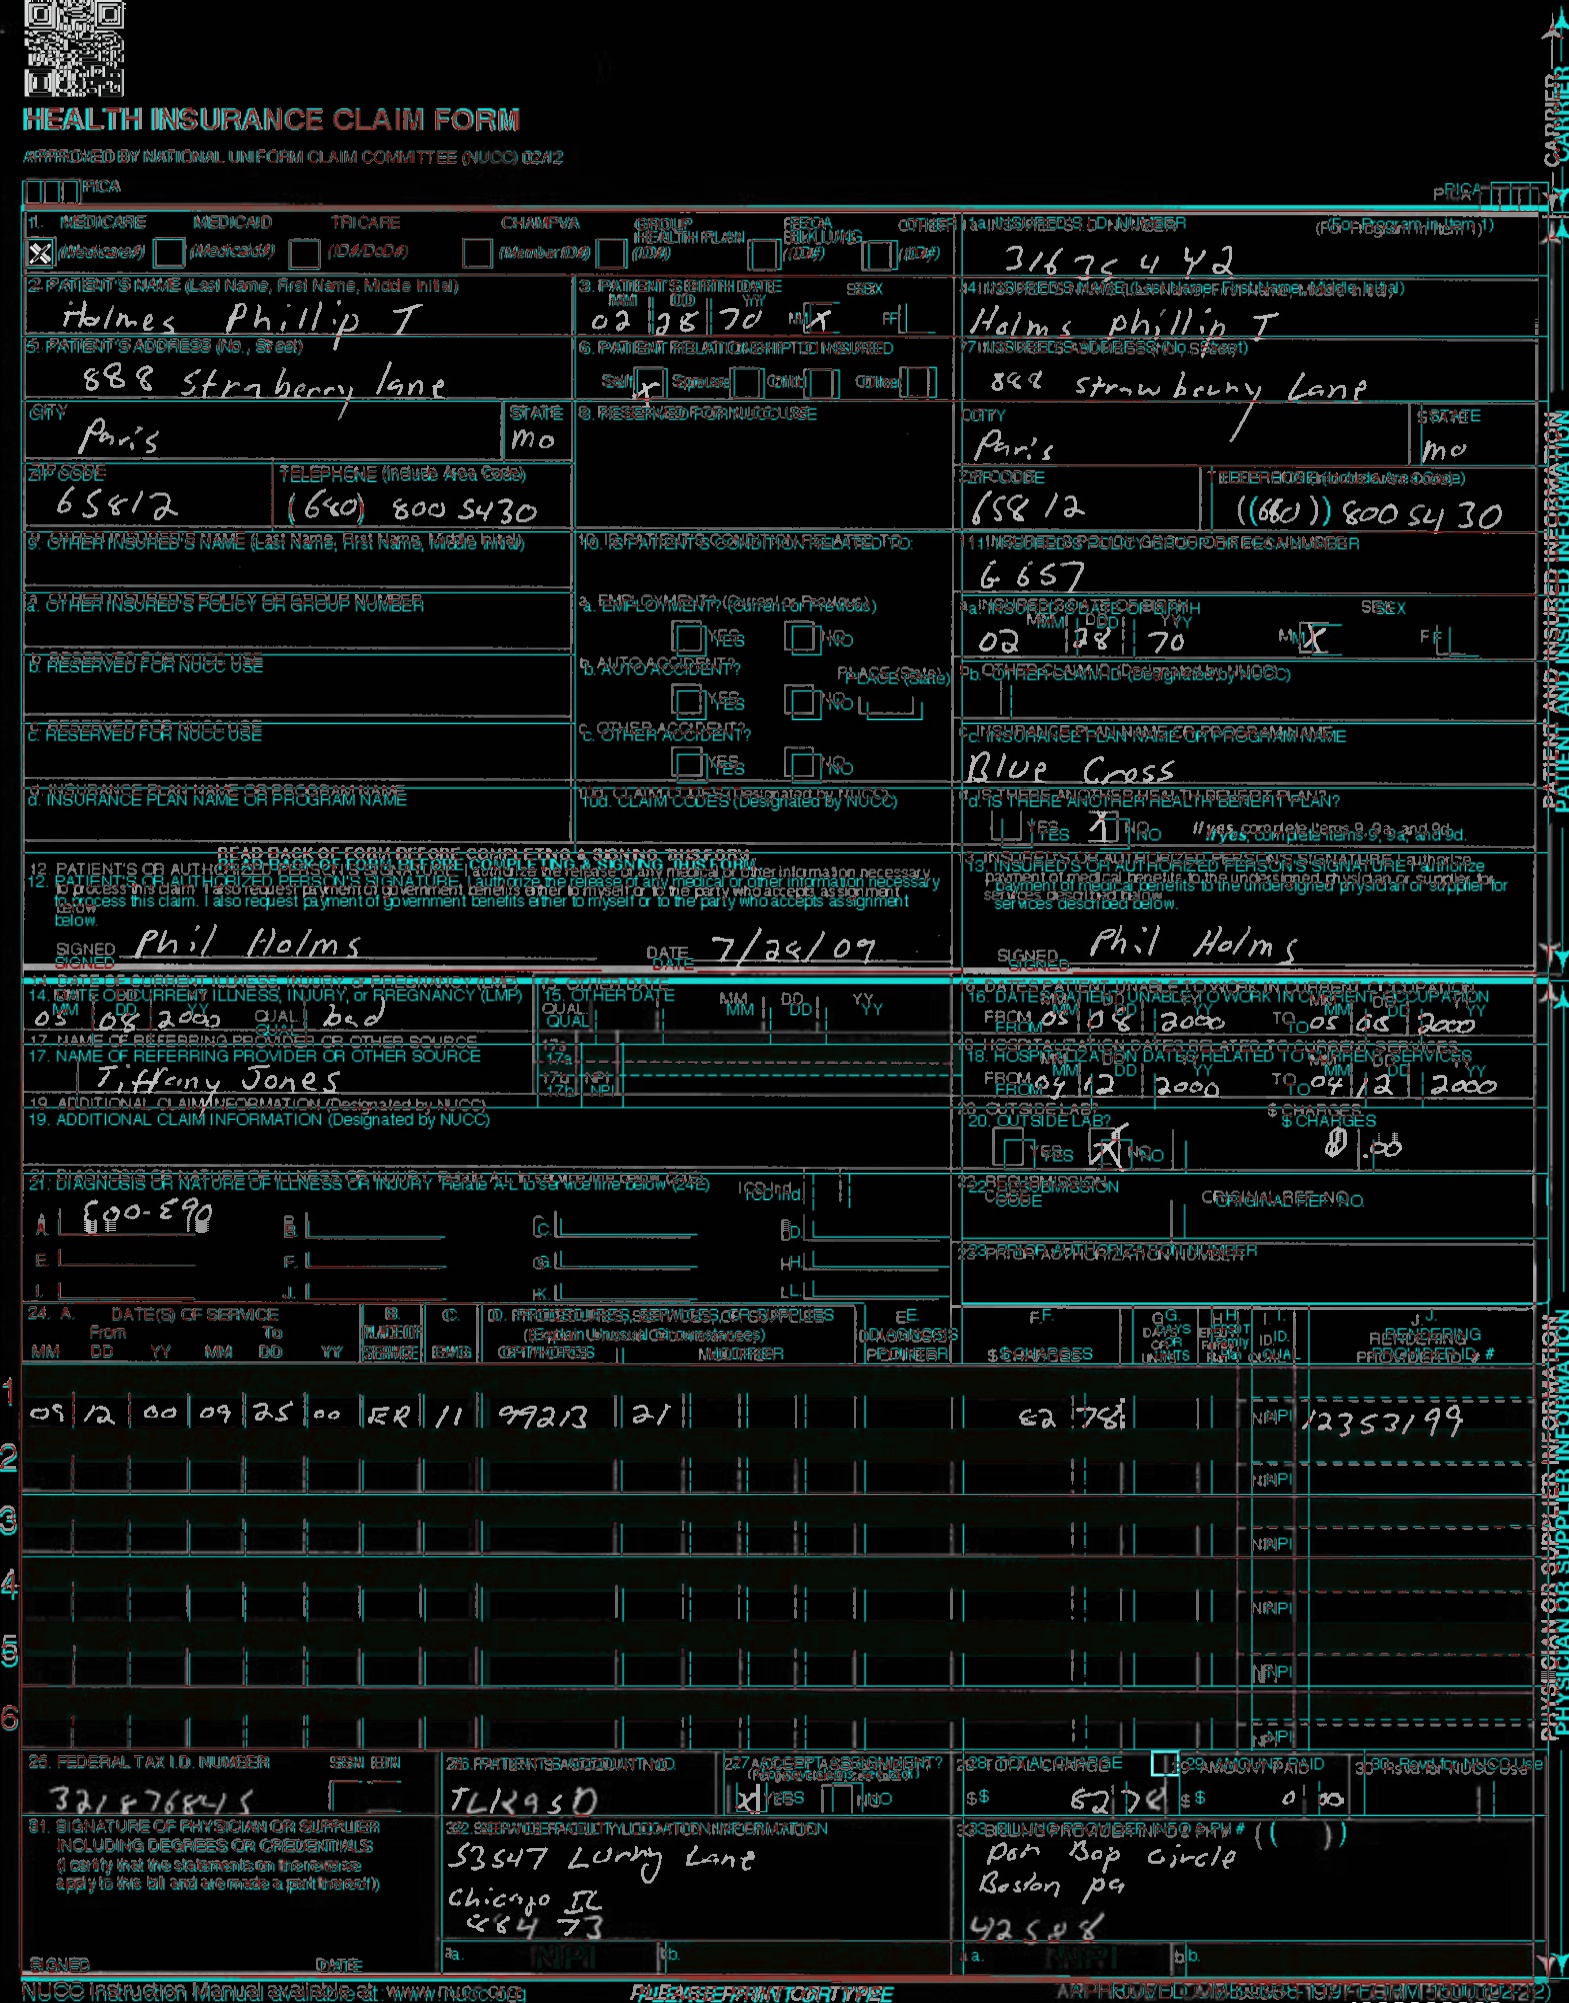 HEALTH INSURANCE CLAIM FORM
APPROVED BY NATIONAL UNIFORM CLAIM COMMITTEE (NUCC) 02/12
PICA PICA
CARRIER
1. MEDICARE MEDICAID TRICARE CHAMPVA GROUP HEALTH PLAN FECA BLK LUNG OTHER
(Medicare#) (Medicaid#) (ID#/DoD#) (Member ID#) (ID#) (ID#) (ID#)
1a. INSURED'S I.D. NUMBER (For Program in Item 1)
2. PATIENT'S NAME (Last Name, First Name, Middle Initial)
Holmes Phillip T
3. PATIENT'S BIRTH DATE SEX
MM DD YY
02 28 70 M X F
4. INSURED'S NAME (Last Name, First Name, Middle Initial)
Holms phillip T
5. PATIENT'S ADDRESS (No., Street)
888 Strnberry lane
6. PATIENT RELATIONSHIP TO INSURED
Self X Spouse Child Other
7. INSURED'S ADDRESS (No., Street)
888 strawberry Lane
CITY STATE
Paris mo
8. RESERVED FOR NUCC USE
CITY STATE
Paris mo
ZIP CODE TELEPHONE (Include Area Code)
65812 (680) 800 5430
ZIP CODE TELEPHONE (Include Area Code)
65812 (680) 800 5430
9. OTHER INSURED'S NAME (Last Name, First Name, Middle Initial)
10. IS PATIENT'S CONDITION RELATED TO:
11. INSURED'S POLICY GROUP OR FECA NUMBER
G 657
a. OTHER INSURED'S POLICY OR GROUP NUMBER
a. EMPLOYMENT? (Current or Previous)
YES NO
a. INSURED'S DATE OF BIRTH SEX
MM DD YY
02 28 70 M X F
b. RESERVED FOR NUCC USE
b. AUTO ACCIDENT? PLACE (State)
YES NO
b. OTHER CLAIM ID (Designated by NUCC)
c. RESERVED FOR NUCC USE
c. OTHER ACCIDENT?
YES NO
c. INSURANCE PLAN NAME OR PROGRAM NAME
Blue Cross
d. INSURANCE PLAN NAME OR PROGRAM NAME
10d. CLAIM CODES (Designated by NUCC)
d. IS THERE ANOTHER HEALTH BENEFIT PLAN?
YES X NO If yes, complete items 9, 9a, and 9d.
READ BACK OF FORM BEFORE COMPLETING & SIGNING THIS FORM.
12. PATIENT'S OR AUTHORIZED PERSON'S SIGNATURE I authorize the release of any medical or other information necessary
to process this claim. I also request payment of government benefits either to myself or to the party who accepts assignment
below.
SIGNED Phil Holms DATE 7/28/09
13. INSURED'S OR AUTHORIZED PERSON'S SIGNATURE I authorize
payment of medical benefits to the undersigned physician or supplier for
services described below.
SIGNED Phil Holms
PATIENT AND INSURED INFORMATION
14. DATE OF CURRENT ILLNESS, INJURY, or PREGNANCY (LMP)
MM DD YY
05 08 2000 QUAL. bad
15. OTHER DATE
QUAL. MM DD YY
16. DATES PATIENT UNABLE TO WORK IN CURRENT OCCUPATION
MM DD YY MM DD YY
FROM 05 08 2000 TO 05 08 2000
17. NAME OF REFERRING PROVIDER OR OTHER SOURCE
Tiffany Jones
17a.
17b. NPI
18. HOSPITALIZATION DATES RELATED TO CURRENT SERVICES
MM DD YY MM DD YY
FROM 04 12 2000 TO 04 12 2000
19. ADDITIONAL CLAIM INFORMATION (Designated by NUCC)
20. OUTSIDE LAB? $ CHARGES
YES X NO 0 .00
21. DIAGNOSIS OR NATURE OF ILLNESS OR INJURY Relate A-L to service line below (24E) ICD Ind.
A. E00-E90 B. C. D.
E. F. G. H.
I. J. K. L.
22. RESUBMISSION CODE ORIGINAL REF. NO.
23. PRIOR AUTHORIZATION NUMBER
24. A. DATE(S) OF SERVICE B. C. D. PROCEDURES, SERVICES, OR SUPPLIES E. F. G. H. I. J.
From To PLACE OF (Explain Unusual Circumstances) DIAGNOSIS DAYS OR EPSDT ID. RENDERING
MM DD YY MM DD YY SERVICE EMG CPT/HCPCS MODIFIER POINTER $ CHARGES UNITS Family Plan QUAL. PROVIDER ID. #
1 09 12 00 09 25 00 ER 11 99213 21 62 78 NPI 12353199
2 NPI
3 NPI
4 NPI
5 NPI
6 NPI
25. FEDERAL TAX I.D. NUMBER SSN EIN
321876845
26. PATIENT'S ACCOUNT NO.
TLK95D
27. ACCEPT ASSIGNMENT?
X YES NO
28. TOTAL CHARGE
$ 62 78
29. AMOUNT PAID
$ 0 00
30. Rsvd for NUCC Use
31. SIGNATURE OF PHYSICIAN OR SUPPLIER
INCLUDING DEGREES OR CREDENTIALS
(I certify that the statements on the reverse
apply to this bill and are made a part thereof.)
SIGNED DATE
32. SERVICE FACILITY LOCATION INFORMATION
53547 Lurry Lane
Chicago IL
88473
a. NPI b.
33. BILLING PROVIDER INFO & PH # ( )
Pan Bop circle
Boston pa
42588
a. NPI b.
PHYSICIAN OR SUPPLIER INFORMATION
NUCC Instruction Manual available at: www.nucc.org PLEASE PRINT OR TYPE